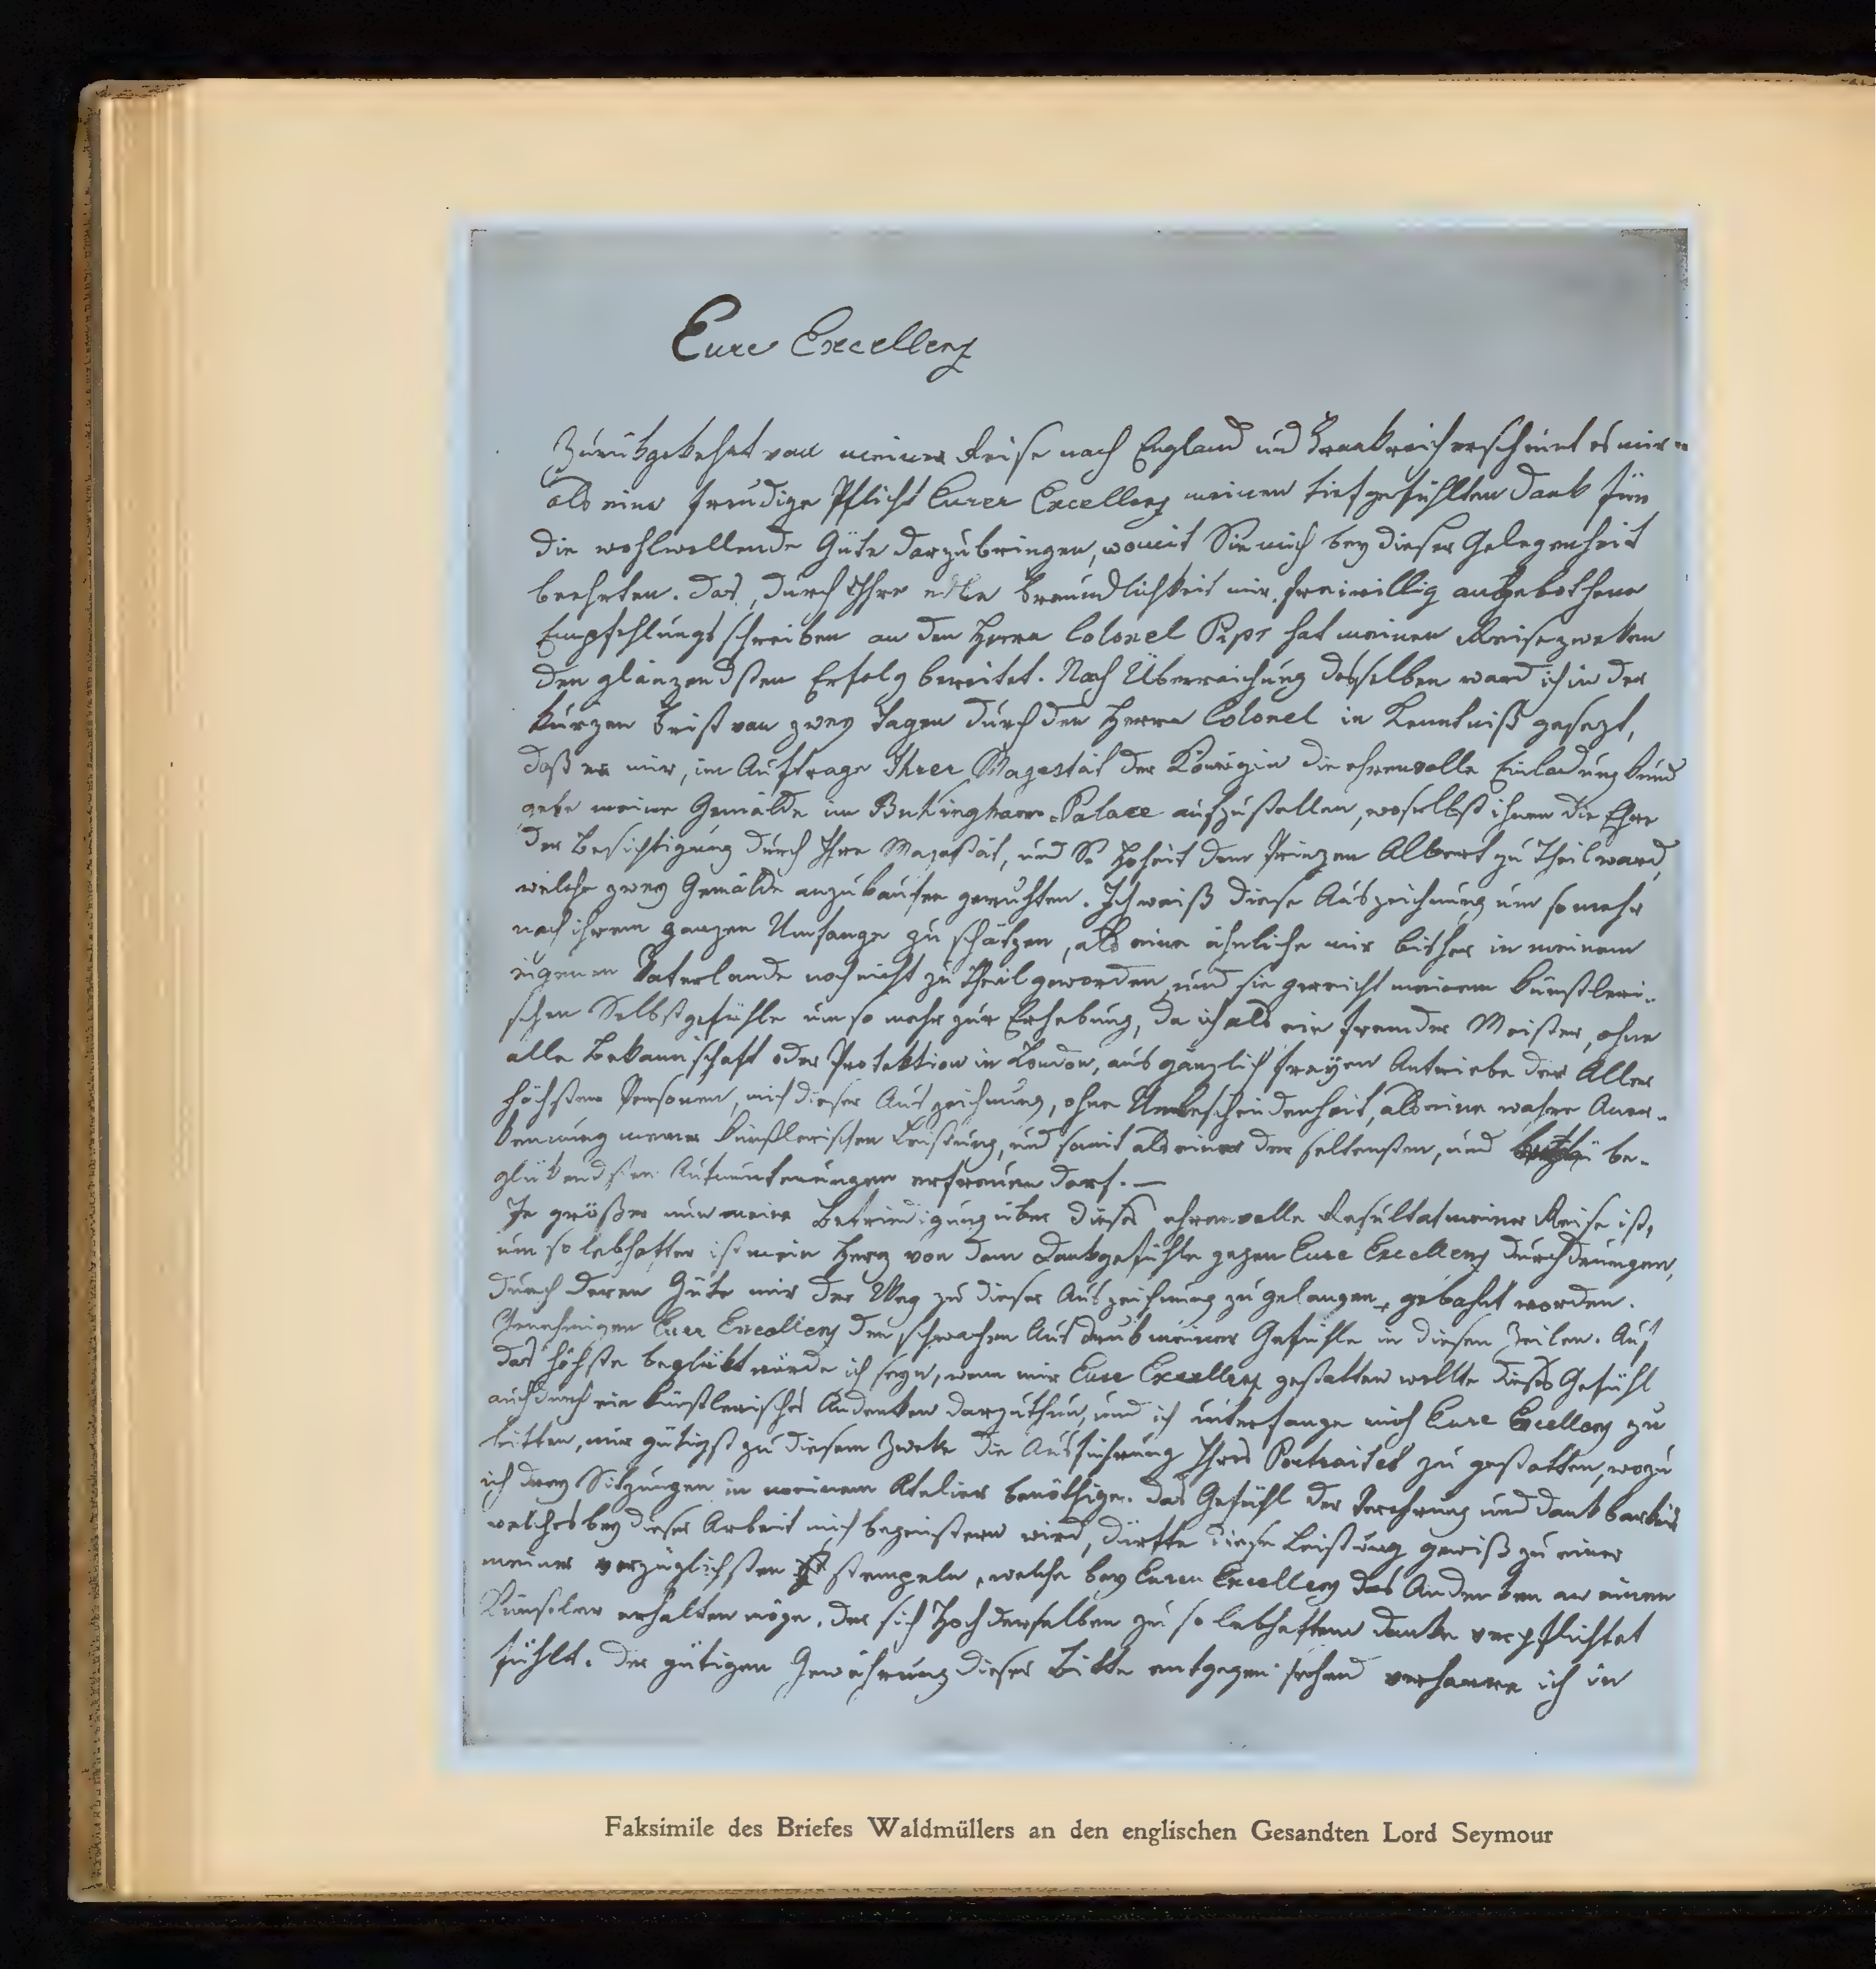 Eure Excellenz
Zurükgekehrt von meiner Reise nach England und Frankreich erscheint es mir
als eine freudige Pflicht Eurer Excellenz meinen tiefgefühlten Dank für
die wohlwollende Güte darzubringen, womit Sie mich bey dieser Gelegenheit
beehrten. Das, durch Ihre edle Freundlichkeit mir freiwillig angebothene
Empfehlungsschreiben an den Herrn Colonel hat meinen Reisezweken
den glänzendsten Erfolg bereitet. Nach Überreichung desselben ward ich in der
kurzen Frist von zwey Tagen durch den Herrn Colonel in Kenntniß gesezt,
daß er mir, im Auftrage Ihrer Magestät der Königin die ehrenvolle Einladung kund
gebe meine Gemälde im Bukingham-Palace aufzustellen, woselbst ihnen die Ehre
der Besichtigung durch Ihre Majestät, und Se Hoheit dem Prinzen Albert zu Theil ward,
welche zwey Gemälde anzukaufen geruhten. Ich weiß diese Auszeichnung um so mehr
nach ihrem ganzen Umfange zu schätzen, als eine ähnliche mir bisher in meinem
eigenen Vaterlande noch nicht zu Theil geworden, und sie gereicht meinem künstleri-
schen Selbstgefühle um so mehr zur Erhebung, da ich als ein fremder Meister, ohne
alle Bekanntschaft oder Protektion in London, aus gänzlich freyem Antriebe der Aller
höchsten Personen, mich dieser Auszeichnung, ohne Unbescheidenheit, als eine wahre Aner-
kennung meiner künstlerischen Leistung, und somit als einer der seltensten, und be-
glükendsten Aufmunterungen erfreuen darf. —
Je größer nun meine Befriedigung über dieses ehrenvolle Resultat meiner Reise ist,
um so lebhafter ist mein Herz von dem Dankgefühle gegen Eure Excellenz durchdrungen,
durch deren Güte mir der Weg zu dieser Auszeichnung zu gelangen, gebahnt worden.
Genehmigen Eure Excellenz den schwachen Ausdruk meiner Gefühle in diesen Zeilen. Auf
das höchste beglükt würde ich seyn, wenn mir Eure Excellenz gestatten wollte dieses Gefühl
auch durch ein künstlerisches Andenken darzuthun, und ich unterfange mich Eure Excellenz zu
bitten, mir gütigst zu diesem Zweke die Ausführung Ihres Portraites zu gestatten, wozu
ich drey Sitzungen in meinem Atelier benöthige. Das Gefühl der Verehrung und Dankbarkeit
welches bey dieser Arbeit mich begeistern wird, dürfte diese Leistung gewiß zu einer
meiner vorzüglichsten stempeln, welche bey Eurer Excellenz das Andenken an einen
Künstler erhalten möge, der sich Hochderselben zu so lebhaftem Danke verpflichtet
fühlt. Der gütigen Gewährung dieser Bitte entgegen sehend verharre ich in
Faksimile des Briefes Waldmüllers an den englischen Gesandten Lord Seymour